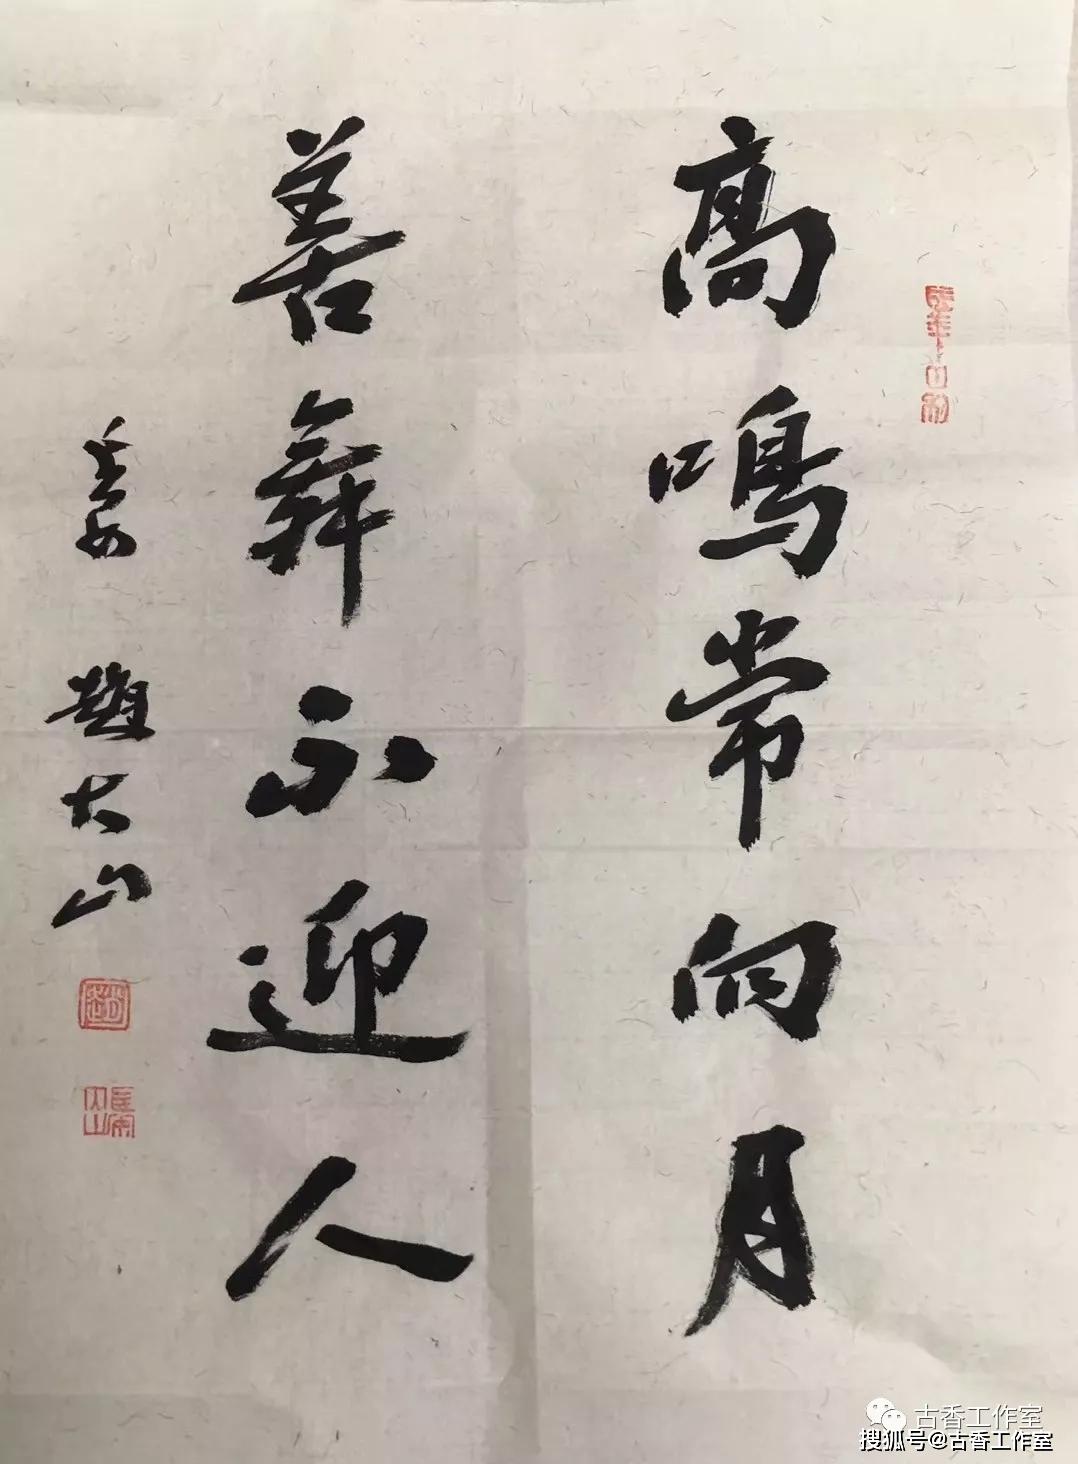 高鳴常向月
善舞不迎人
趙大山
古香工作室
搜狐号@古香工作室